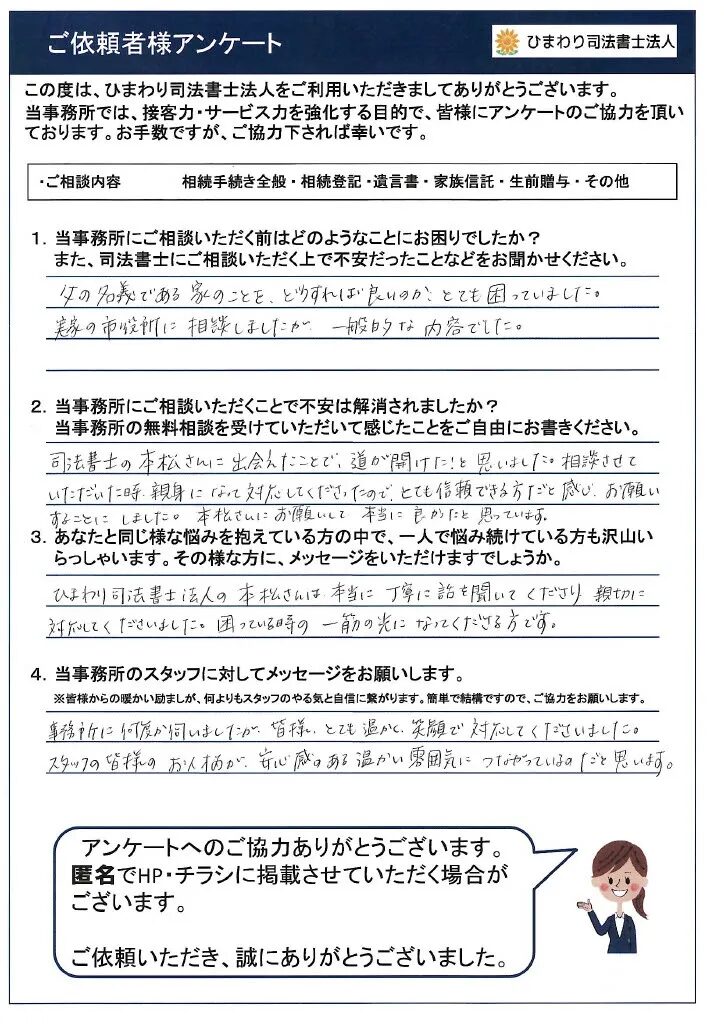 ご依頼者様アンケート
ひまわり司法書士法人
この度は、ひまわり司法書士法人をご利用いただきましてありがとうございます。
当事務所では、接客力・サービス力を強化する目的で、皆様にアンケートのご協力を頂い
ております。お手数ですが、ご協力下されば幸いです。
・ご相談内容 相続手続き全般・相続登記・遺言書・家族信託・生前贈与・その他
1．当事務所にご相談いただく前はどのようなことにお困りでしたか？
また、司法書士にご相談いただく上で不安だったことなどをお聞かせください。
父の名義である家のことを、どうすれば良いのか、とても困っていました。
実家の市役所に相談しましたが、一般的な内容でした。
2．当事務所にご相談いただくことで不安は解消されましたか？
当事務所の無料相談を受けていただいて感じたことをご自由にお書きください。
司法書士の本松さんに出会えたことで、道が開けた！と思いました。相談させて
いただいた時、親身になって対応してくださったので、とても信頼できる方だと感じ、お願い
することにしました。本松さんにお願いして本当に良かったと思っています。
3．あなたと同じ様な悩みを抱えている方の中で、一人で悩み続けている方も沢山い
らっしゃいます。その様な方に、メッセージをいただけますでしょうか。
ひまわり司法書士法人の本松さんは、本当に丁寧に話を聞いてくださり、親切に
対応してくださいました。困っている時の一筋の光になってくださる方です。
4．当事務所のスタッフに対してメッセージをお願いします。
※皆様からの暖かい励ましが、何よりもスタッフのやる気と自信に繋がります。簡単で結構ですので、ご協力をお願いします。
事務所に何度か伺いましたが、皆様、とても温かく、笑顔で対応してくださいました。
スタッフの皆様のお人柄が、安心感のある温かい雰囲気につながっているのだと思います。
アンケートへのご協力ありがとうございます。
匿名でHP・チラシに掲載させていただく場合が
ございます。
ご依頼いただき、誠にありがとうございました。